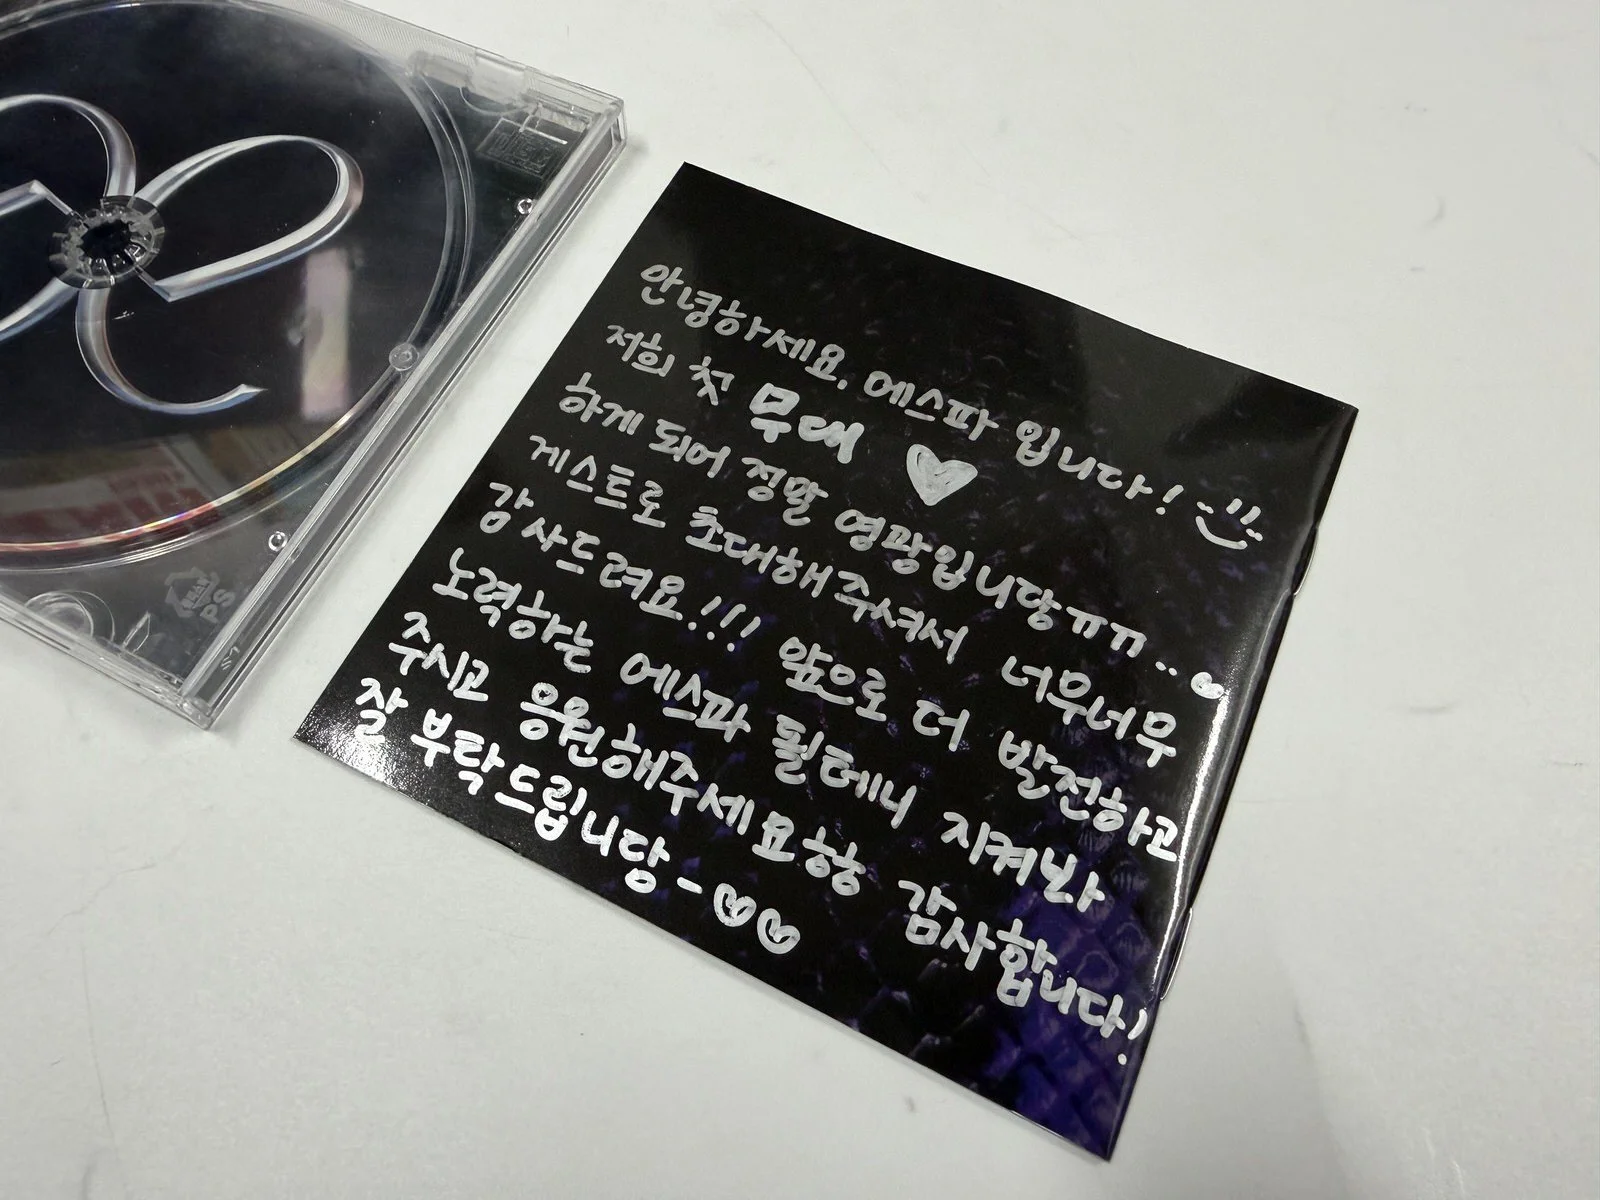 안녕하세요. 에스파 입니다!
저희 첫 무대 ♥
하게 되어 정말 영광입니당ㅠㅠ..♥
게스트로 초대해주셔서 너무너무
감사드려요!!! 앞으로 더 발전하고
노력하는 에스파 될테니 지켜봐
주시고 응원해주세요항항 감사합니다!
잘 부탁드립니당-♥♥
PS